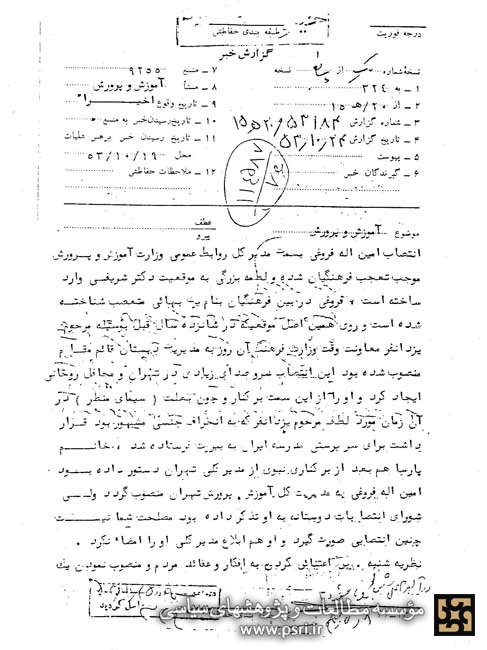 طبقه بندی حفاظتی
درجه فوریت
گزارش خبر
نسخه شماره یک از نسخه
۱ ـ به ۳۲۴
۲ ـ از ۲۰ هـ ۱۵
۳ ـ شماره گزارش
۴ ـ تاریخ گزارش ۵۳٫۱۰٫۲۴
۵ ـ پیوست
۶ ـ گیرندگان خبر
۷ ـ منبع ۹۲۵۵
۸ ـ منشأ آموزش و پرورش
۹ ـ تاریخ وقوع اخیرا"
۱۰ ـ تاریخ رسیدن خبر به منبع
۱۱ ـ تاریخ رسیدن خبر برهبر عملیات
محل ۵۳/۱۰/۱۹
۱۲ ـ ملاحظات حفاظتی
موضوع آموزش و پرورش
عطف
پیرو
انتصاب امین اله فروغی بسمت مدیر کل روابط عمومی وزارت آموزش و پرورش
موجب تعجب فرهنگیان شده و لطمه بزرگی به موقعیت دکتر شریفی وارد
ساخته است فروغی در بین فرهنگیان بنام یک بهائی متعصب شناخته
شده است و روی همین اصل موقعیکه در شانزده سال قبل بوسیله مرحوم
یزدانفر معاونت وقت وزارت فرهنگ آن روز به مدیریت دبیرستان قائم مقام
منصوب شده بود این انتصاب سر و صدای زیادی در تهران و محافل روحانی
ایجاد کرد و او را از این سمت برکنار و چون بعلت ( سیمای منظر ) در
آن زمان مورد لطف مرحوم یزدانفر که به انحراف جنسی مشهور بود قرار
داشت برای سرپرستی مدرسه ایران به بصره فرستاده شد ، خانم
پارسا هم بعد از برکناری نبوی از مدیر کلی تهران دستور داده بود
امین اله فروغی به مدیریت کل آموزش و پرورش تهران منصوب گردد ولی
شورای انتصابات دوستانه به او تذکر داده بود مصلحت شما نیست
چنین انتصابی صورت گیرد و او هم ابلاغ مدیر کلی او را امضاء نکرد .
نظریه شنبه . بی اعتنایی کردن به افکار و عقائد مردم و منصوب نمودن یک
مؤسسه مطالعات و پژوهشهای سیاسی
www.psri.ir